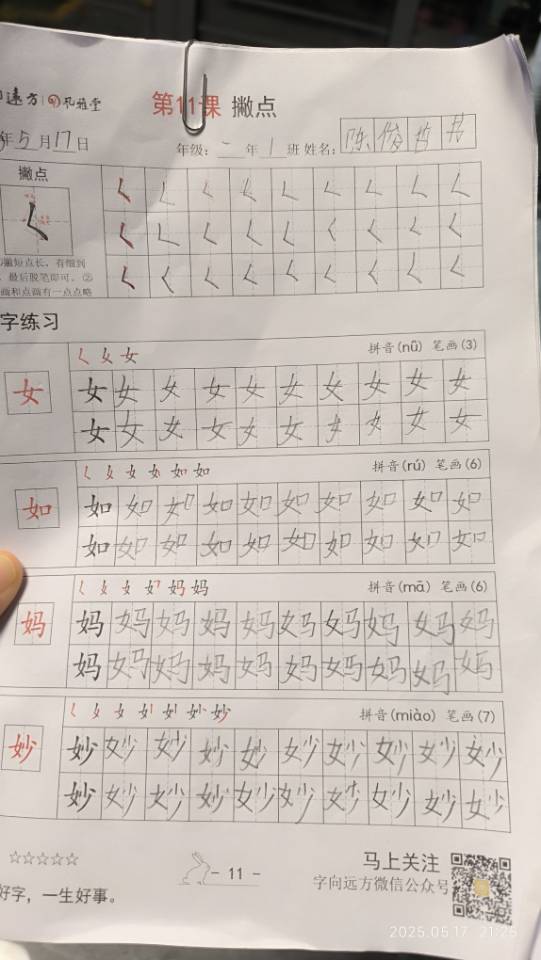 第11课 撇点
年5月17日
年级:一年1班 姓名:陈俊哲
撇点
撇短点长，有细到
最后脱笔即可。②
画和点画有一点点略
字练习
拼音(nǚ) 笔画(3)
女 女 女 女 女 女 女 女 女 女 女
女 女 女 女 女 女 女 女 女 女
拼音(rú) 笔画(6)
如 如 如 如 如 如 如 如 如 如 如
如 如 如 如 如 如 如 如 如 如
拼音(mā) 笔画(6)
妈 妈 妈 妈 妈 妈 妈 妈 妈 妈 妈
妈 妈 妈 妈 妈 妈 妈 妈 妈 妈
拼音(miào) 笔画(7)
妙 妙 妙 妙 妙 妙 妙 妙 妙 妙 妙
妙 妙 妙 妙 妙 妙 妙 妙 妙 妙
☆☆☆☆☆
- 11 -
马上关注
字向远方微信公众号
好字，一生好事。
2025.05.17 21:25